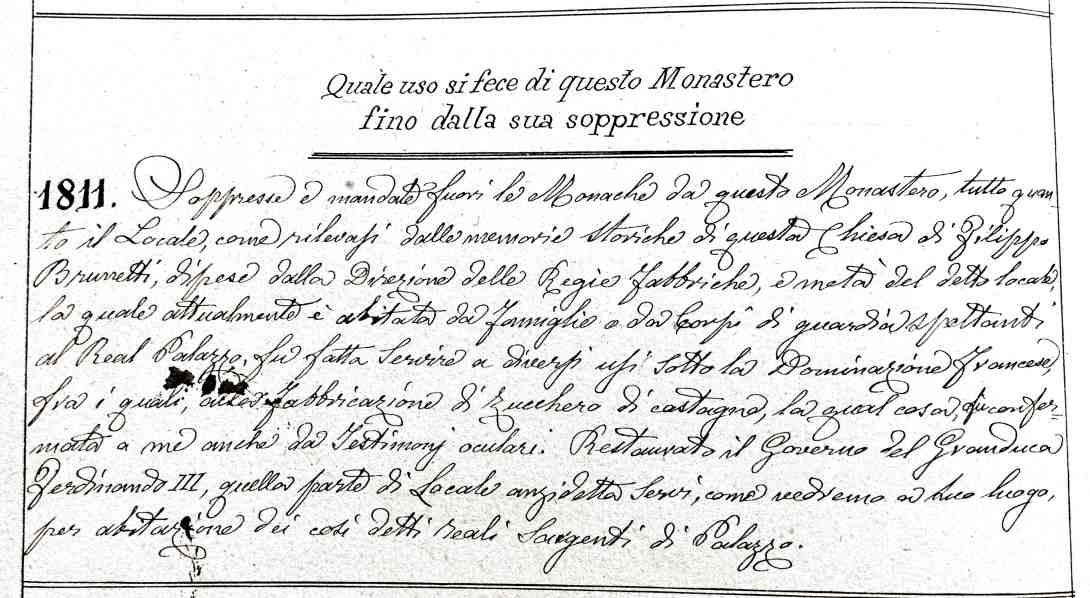 Quale uso si fece di questo Monastero
fino dalla sua soppressione
1811. Soppresse e mandate fuori le Monache da questo Monastero, tutto quan-
to il Locale, come rilevasi dalle memorie storiche di questa Chiesa di Filippo
Brunetti, dipese dalla Direzione delle Regie fabbriche, e metà del detto locale,
la quale attualmente è abitata da famiglie e da Corpi di guardia spettanti
al Real Palazzo, fu fatta servire a diversi usi sotto la Dominazione francese,
fra i quali, fabbricazione di Zucchero di castagne, la qual cosa, fu confer-
mata a me anche da Testimonj oculari. Restaurato il Governo del Granduca
Ferdinando III, quella parte di Locale anzidetta servì, come vedremo a suo luogo,
per abitazione dei così detti reali Sargenti di Palazzo.